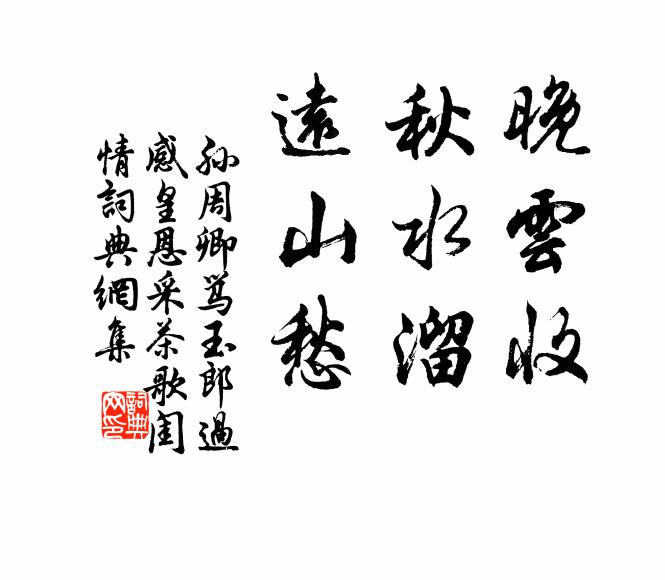 晚雲收
秋水溜
遠山愁
孫周卿罵玉郎過
感皇恩采茶歌閨
情詞典網集
詞典
网印